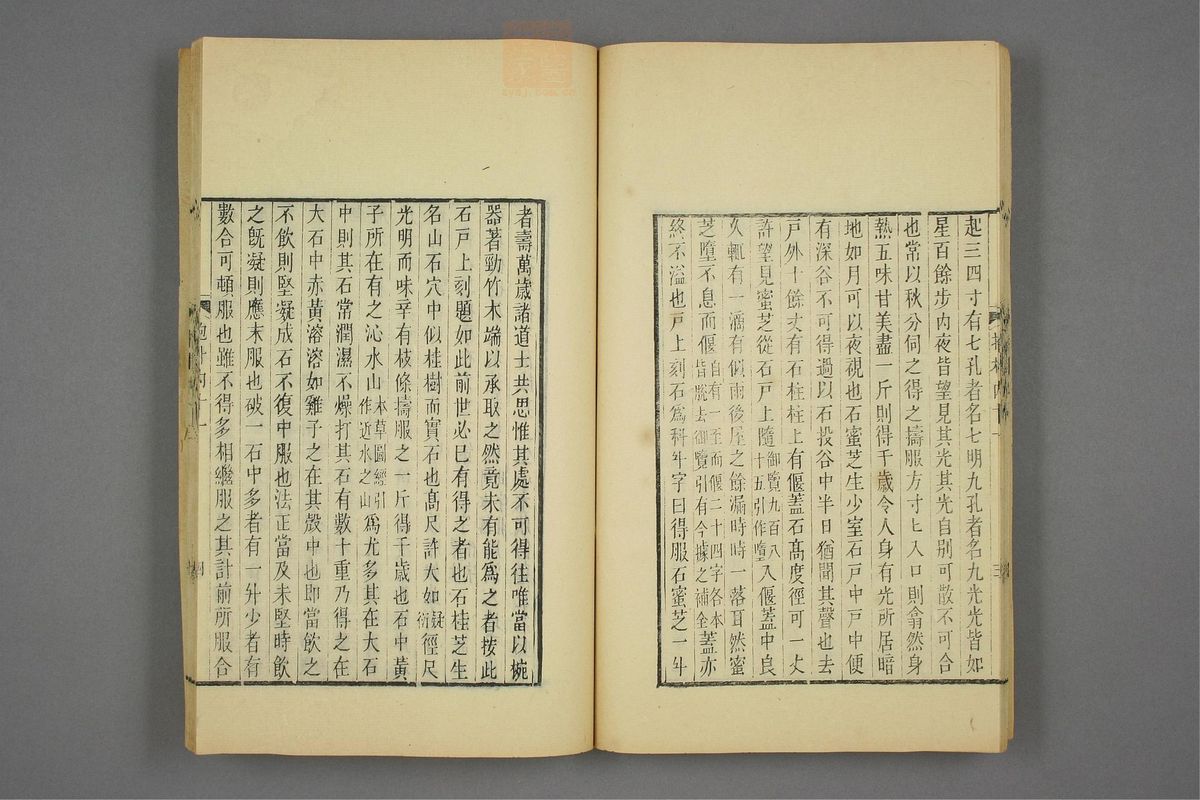 起三四寸有七孔者名七明九孔者名九光光皆如
星百餘步內夜皆望見其光其光自別可散不可合
也常以秋分伺之得之擣服方寸匕入口則翕然身
熱五味甘美盡一斤則得千歲令人身有光所居暗
地如月可以夜視也石蜜芝生少室石戶中戶中便
有深谷不可得過以石投谷中半日猶聞其聲也去
戶外十餘丈有石柱柱上有偃蓋石高度徑可一丈
許望見蜜芝從石戶上隨御覽九百八十五引作墮入偃蓋中良
久輒有一滴有似雨後屋之餘漏時時一落耳然蜜
芝墮不息而偃自有一至而偃二十四字各本皆脫去御覽引有今據之補全蓋亦
終不溢也戶上刻石爲科斗字曰得服石蜜芝一斗
者壽萬歲諸道士共思惟其處不可得往唯當以椀
器著勁竹木端以承取之然竟未有能爲之者按此
石戶上刻題如此前世必已有得之者也石桂芝生
名山石穴中似桂樹而實石也高尺許大如疑衍徑尺
光明而味辛有枝條擣服之一斤得千歲也石中黃
子所在有之沁水山本草圖經引作近水之山爲尤多其在大石
中則其石常潤濕不燥打其石有數十重乃得之在
大石中赤黃溶溶如雞子之在其殼中也即當飲之
不飲則堅凝成石不復中服也法正當及未堅時飲
之既凝則應末服也破一石中多者有一升少者有
數合可頓服也雖不得多相繼服之其計前所服合